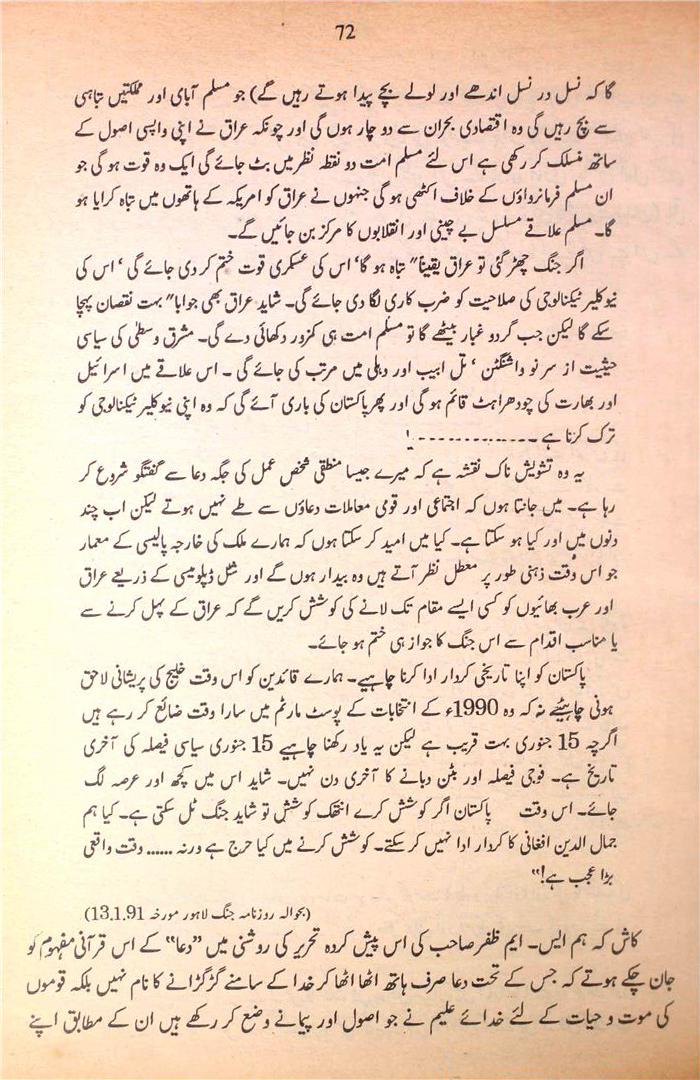 72
گا کہ نسل در نسل اندھے اور لولے بچے پیدا ہوتے رہیں گے) جو مسلم آبادی اور مملکتیں تباہی
سے بچ رہیں گی وہ اقتصادی بحران سے دو چار ہوں گی اور چونکہ عراق نے اپنی واپسی اصول کے
ساتھ منسلک کر رکھی ہے اس لئے مسلم امت دو نقطہ نظر میں بٹ جائے گی ایک وہ قوت ہو گی جو
ان مسلم فرمانرواؤں کے خلاف اکٹھی ہو گی جنہوں نے عراق کو امریکہ کے ہاتھوں میں تباہ کرایا ہو
گا۔ مسلم علاقے مسلسل بے چینی اور انقلابوں کا مرکز بن جائیں گے۔
اگر جنگ چھڑ گئی تو عراق یقیناً" تباہ ہو گا' اس کی عسکری قوت ختم کر دی جائے گی ' اس کی
نیوکلیر ٹیکنالوجی کی صلاحیت کو ضرب کاری لگا دی جائے گی۔ شاید عراق بھی جوابا" بہت نقصان پہنچا
سکے گا لیکن جب گردو غبار بیٹھے گا تو مسلم امت ہی کمزور دکھائی دے گی۔ مشرق وسطیٰ کی سیاسی
حیثیت از سر نو واشنگٹن ' تل ابیب اور دہلی میں مرتب کی جائے گی ۔ اس علاقے میں اسرائیل
اور بھارت کی چودھراہٹ قائم ہو گی اور پھر پاکستان کی باری آئے گی کہ وہ اپنی نیوکلیر ٹیکنالوجی کو
ترک کرنا ہے ۔-------------!
یہ وہ تشویش ناک نقشہ ہے کہ میرے جیسا منطقی شخص عمل کی جگہ دعا سے گفتگو شروع کر
رہا ہے۔ میں جانتا ہوں کہ اجتماعی اور قومی معاملات دعاؤں سے طے نہیں ہوتے لیکن اب چند
دنوں میں اور کیا ہو سکتا ہے۔ کیا میں امید کر سکتا ہوں کہ ہمارے ملک کی خارجہ پالیسی کے معمار
جو اس وقت ذہنی طور پر معطل نظر آتے ہیں وہ بیدار ہوں گے اور شٹل ڈپلومیسی کے ذریعے عراق
اور عرب بھائیوں کو کسی ایسے مقام تک لانے کی کوشش کریں گے کہ عراق کے پہل کرنے سے
یا مناسب اقدام سے اس جنگ کا جواز ہی ختم ہو جائے۔
پاکستان کو اپنا تاریخی کردار ادا کرنا چاہیے۔ ہمارے قائدین کو اس وقت خلیج کی پریشانی لاحق
ہونی چاہیئے نہ کہ وہ 1990ء کے انتخابات کے پوسٹ مارٹم میں سارا وقت ضائع کر رہے ہیں
اگرچہ 15 جنوری بہت قریب ہے لیکن یہ یاد رکھنا چاہیے 15 جنوری سیاسی فیصلہ کی آخری
تاریخ ہے۔ فوجی فیصلہ اور بٹن دبانے کا آخری دن نہیں۔ شاید اس میں کچھ اور عرصہ لگ
جائے۔ اس وقت پاکستان اگر کوشش کرے انتھک کوشش تو شاید جنگ ٹل سکتی ہے۔ کیا ہم
جمال الدین افغانی کا کردار ادا نہیں کر سکتے۔ کوشش کرنے میں کیا حرج ہے ورنہ ...... وقت واقعی
بڑا عجب ہے!"
(بحوالہ روزنامہ جنگ لاہور مورخہ 13.1.91)
کاش کہ ہم ایس۔ ایم ظفر صاحب کی اس پیش کردہ تحریر کی روشنی میں "دعا" کے اس قرآنی مفہوم کو
جان چکے ہوتے کہ جس کے تحت دعا صرف ہاتھ اٹھا اٹھا کر خدا کے سامنے گڑگڑانے کا نام نہیں بلکہ قوموں
کی موت و حیات کے لئے خدائے علیم نے جو اصول اور پیمانے وضع کر رکھے ہیں ان کے مطابق اپنے